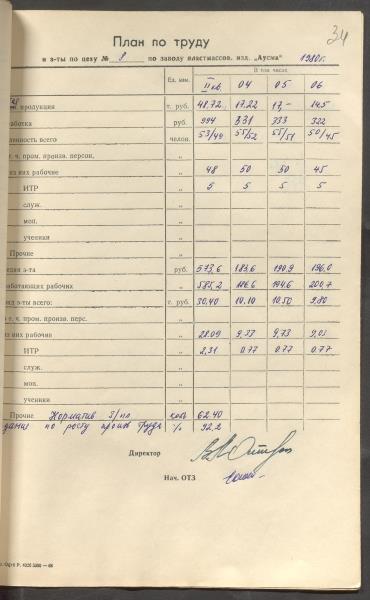 34
План по труду
и з-ты по цеху № 8 по заводу пластмассов. изд. „Аусма" 1980г.
Ед. изм. II кв. В том числе
04 05 06
продукция т. руб. 48.72 17.22 17,- 14.5
ботка руб. 994 331 333 322
ленность всего челов. 53/49 55/52 55/51 50/45
ч. пром. произв. персон. „
из них рабочие „ 48 50 50 45
ИТР „ 5 5 5 5
служ. „
моп. „
ученики „
Прочие „
з-та руб. 573,6 183,6 190,9 196,0
работающих рабочих „ 585,2 186,6 194,6 200,7
нд з-ты всего: т. руб. 30,40 10.10 10.50 9.80
ч. пром. произв. перс. „
из них рабочие „ 28.09 9,33 9,73 9,03
ИТР „ 2,31 0.77 0.77 0.77
служ. „
моп. „
ученики „
Прочие Норматив З/по коп 62.40
дание по росту произв труда % 92,2
Директор
Нач. ОТЗ